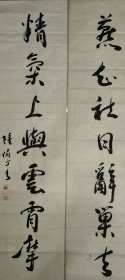 燕知社日辭巢去
精氣上與雲霄摩